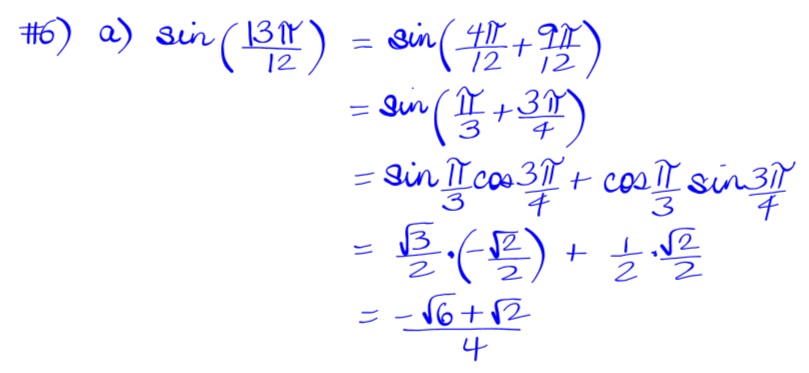 #6) a) sin(13π/12) = sin(4π/12 + 9π/12)
= sin(π/3 + 3π/4)
= sin π/3 cos 3π/4 + cos π/3 sin 3π/4
= √3/2 · (-√2/2) + 1/2 · √2/2
= (-√6 + √2)/4